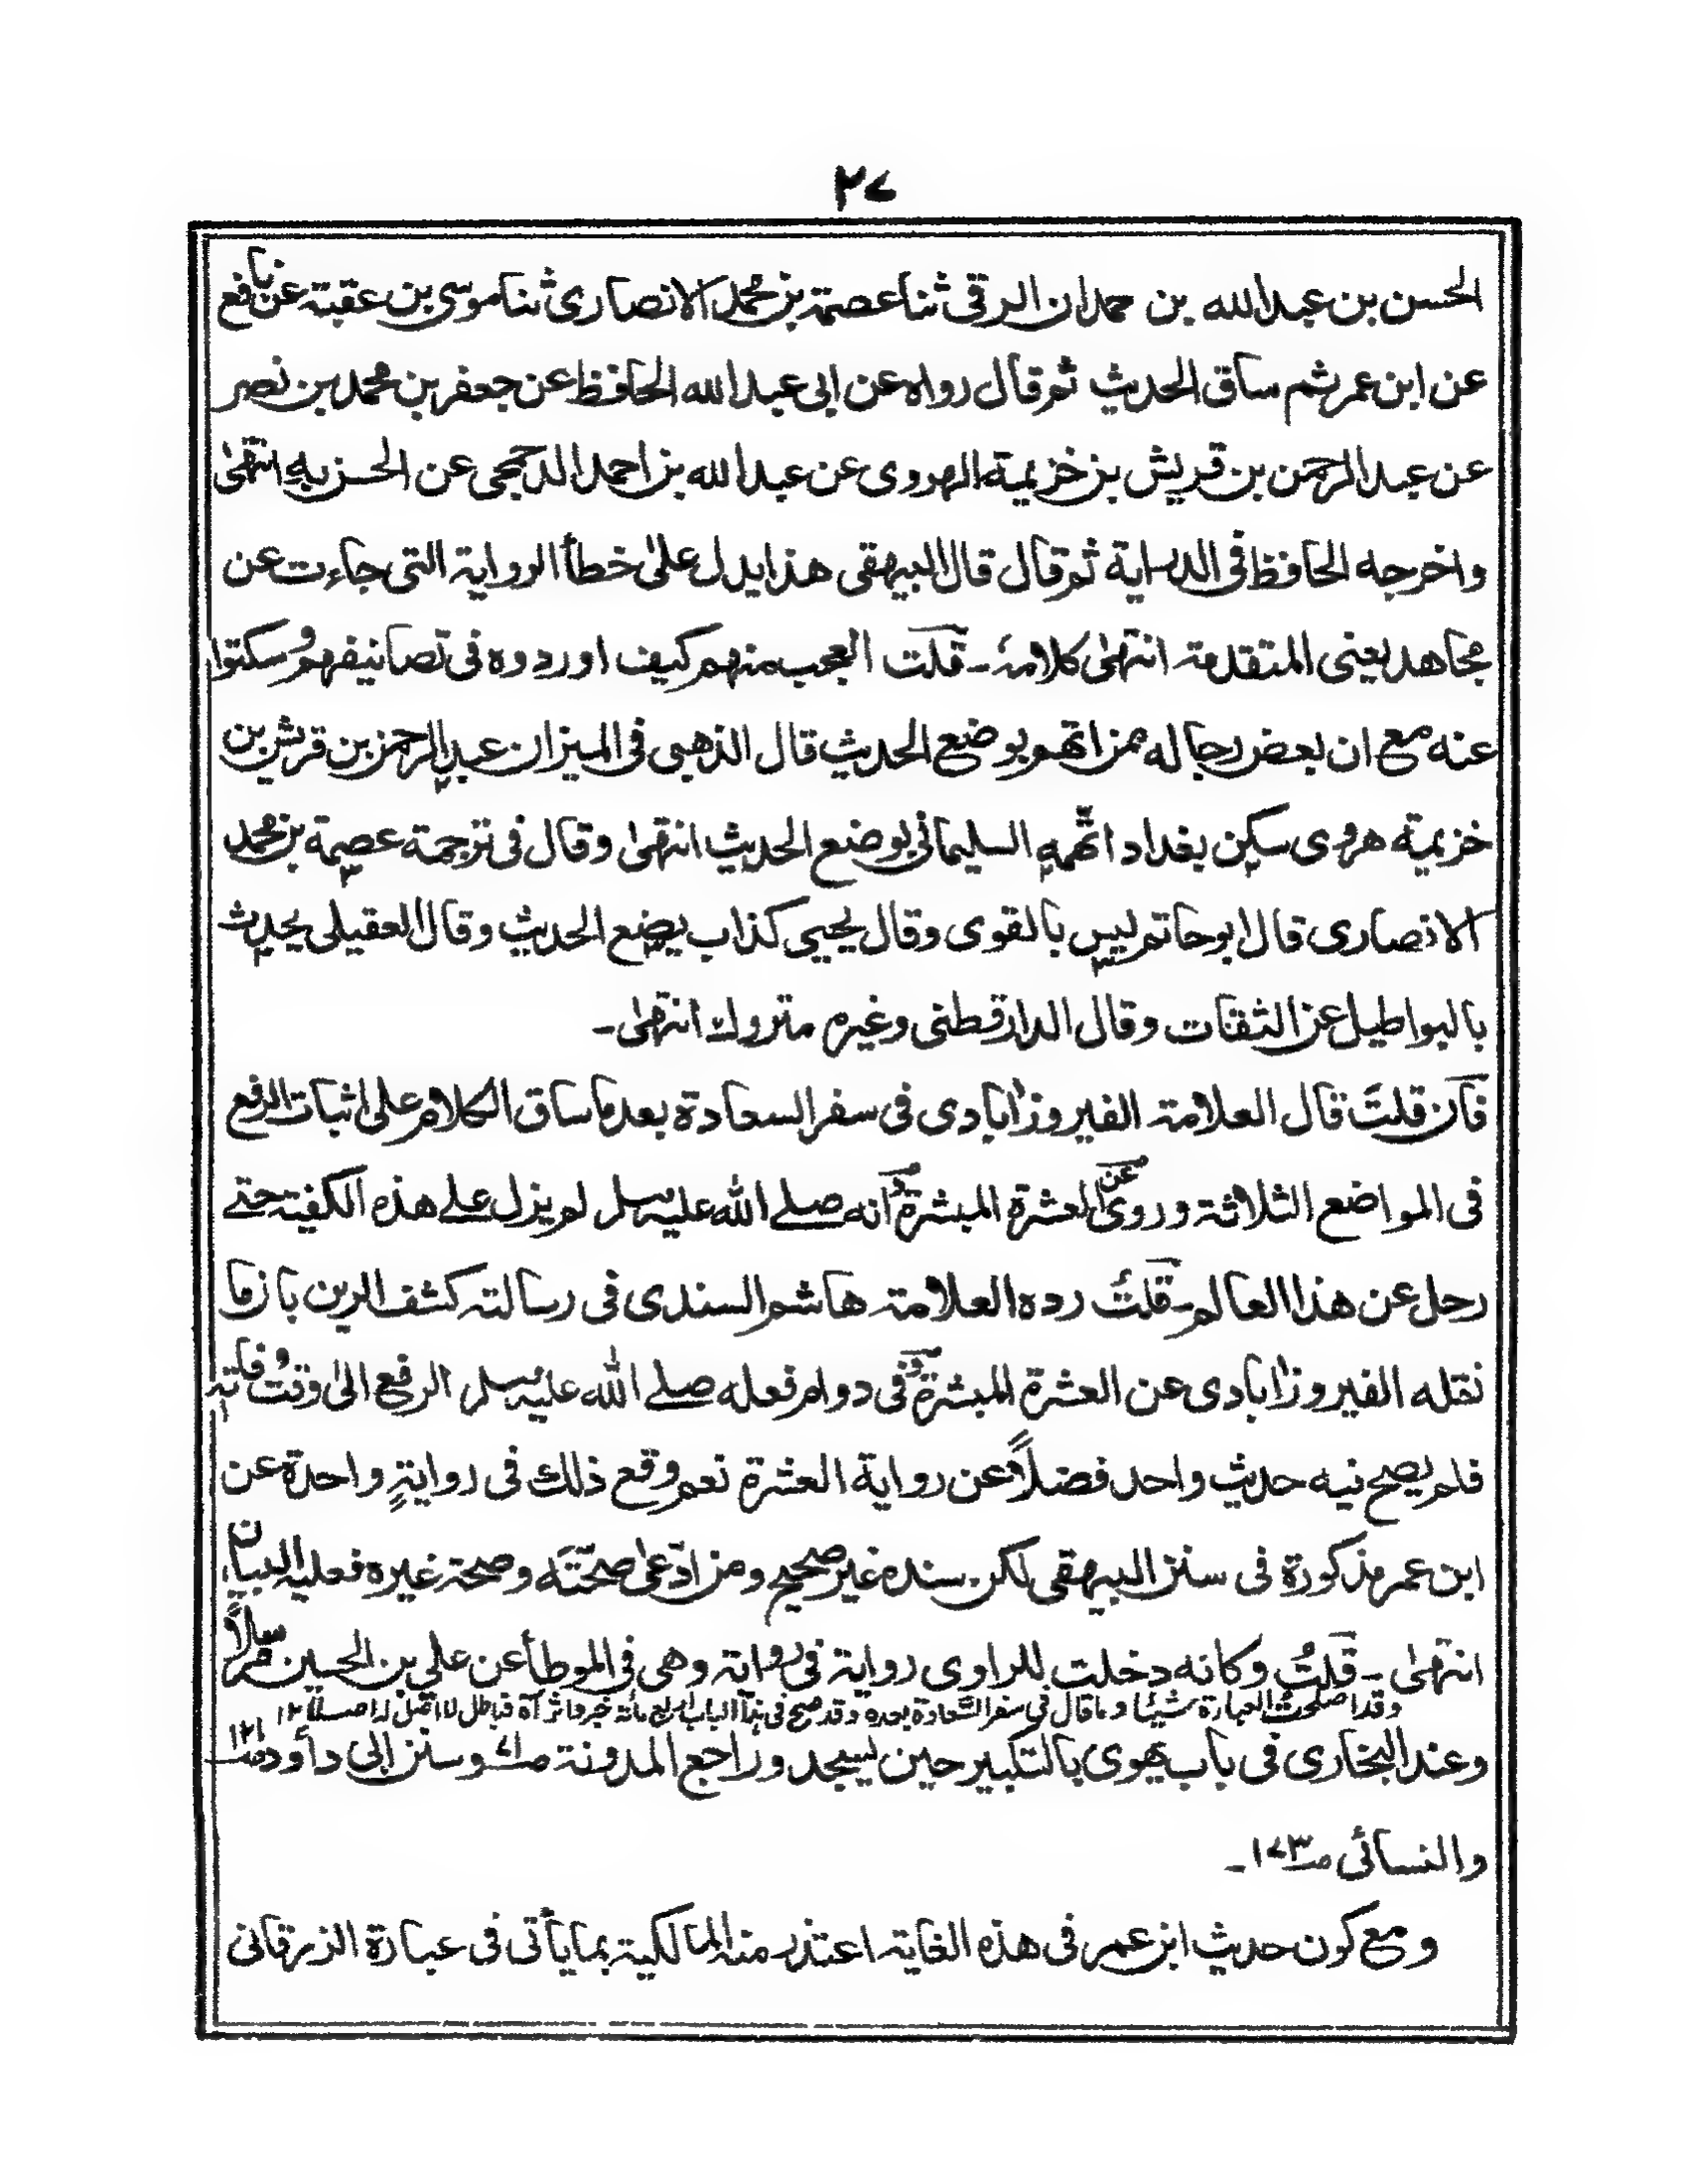 ٢٧
الحسن بن عبد الله بن حمدان الرقى ثنا عصمة بن محمد الانصارى ثنا موسى بن عقبة عن نافع
عن ابن عمر ثم ساق الحديث ثم قال رواه عن ابى عبد الله الحافظ عن جعفر بن محمد بن نصر
عن عبد الرحمن بن قريش بن خزيمة الهروى عن عبد الله بن احمد الدمجى عن الحسن به انتهىٰ
واخرجه الحافظ فى الدراية ثم قال قال البيهقى هذا يدل علىٰ خطأ الرواية التى جاءت عن
مجاهد يعنى المتقدمة انتهىٰ كلامهٗ - قلت العجب منهم كيف اوردوه فى تصانيفهم وسكتوا
عنه مع ان بعض رجاله ممن اتهم بوضع الحديث قال الذهبى فى الميزان عبد الرحمن بن قريش بن
خزيمة هروى سكن بغداد اتّهمه السليمانى بوضع الحديث انتهىٰ وقال فى ترجمة عصمة بن محمد
الانصارى قال ابو حاتم ليس بالقوى وقال يحيى كذاب يضع الحديث وقال العقيلى يحدث
بالبواطيل عن الثقات وقال الدارقطنى وغيره متروك انتهىٰ -
فان قلت قال العلامة الفيروزابادى فى سفر السعادة بعد ما ساق الكلام على اثبات الرفع
فى المواضع الثلاثة وروى عن العشرة المبشرة انه صلے الله عليه وسلم لم يزل علے هذه الكفية حتے
رحل عن هذا العالم - قلتُ رده العلامة هاشم السندى فى رسالته كشف الرين بان ما
نقله الفيروزابادى عن العشرة المبشرة فى دوام فعله صلے الله عليه وسلم الرفع الىٰ وقت وفاته
فلم يصح فيه حديث واحد فضلاً عن رواية العشرة نعم وقع ذلك فى روايةٍ واحدة عن
ابن عمر مذكورة فى سنن البيهقى لكن سنده غير صحيح ومن ادّعىٰ صحّتَه وصحة غيره فعليه البيان
انتهىٰ - قلتُ وكانه دخلت للراوى رواية فى رواية وهى فى الموطأ عن على بن الحسين مرسلاً
وقد اصلحتُ العبارة شيئا وما قال فى سفر السّعادة بعده وقد صح فى هذا الباب اربع مائة خبر واثر آه فباطل لا اصل له اصلاً ١٢
وعند البخارى فى باب يهوى بالتكبير حين يسجد وراجع المدونة صـ٧١ وسنن ابى داؤد صـ١٢١
والنسائى صـ١٧٣ -
ومع كون حديث ابن عمر فى هذه الغاية اعتذر منه المالكية بما يأتى فى عبارة الزرقانى